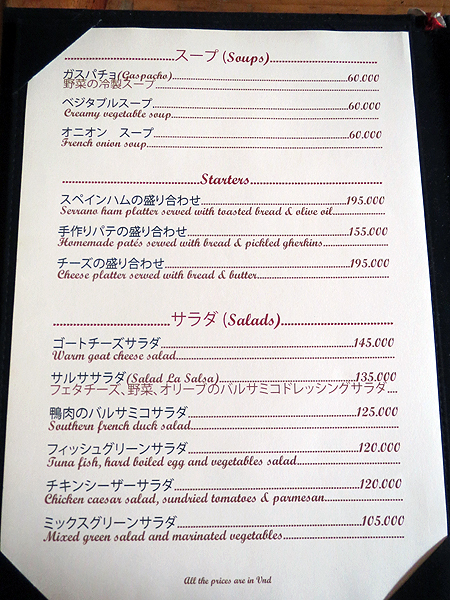 スープ (Soups)
ガスパチョ(Gaspacho)...60.000
野菜の冷製スープ
ベジタブルスープ...60.000
Creamy vegetable soup
オニオン スープ...60.000
French onion soup
Starters
スペインハムの盛り合わせ...195.000
Serrano ham platter served with toasted bread & olive oil
手作りパテの盛り合わせ...155.000
Homemade patés served with bread & pickled gherkins
チーズの盛り合わせ...195.000
Cheese platter served with bread & butter
サラダ (Salads)
ゴートチーズサラダ...145.000
Warm goat cheese salad
サルササラダ(Salad La Salsa)...135.000
フェタチーズ、野菜、オリーブのバルサミコドレッシングサラダ
鴨肉のバルサミコサラダ...125.000
Southern french duck salad
フィッシュグリーンサラダ...120.000
Tuna fish, hard boiled egg and vegetables salad
チキンシーザーサラダ...120.000
Chicken caesar salad, sundried tomatoes & parmesan
ミックスグリーンサラダ...105.000
Mixed green salad and marinated vegetables
All the prices are in Vnd